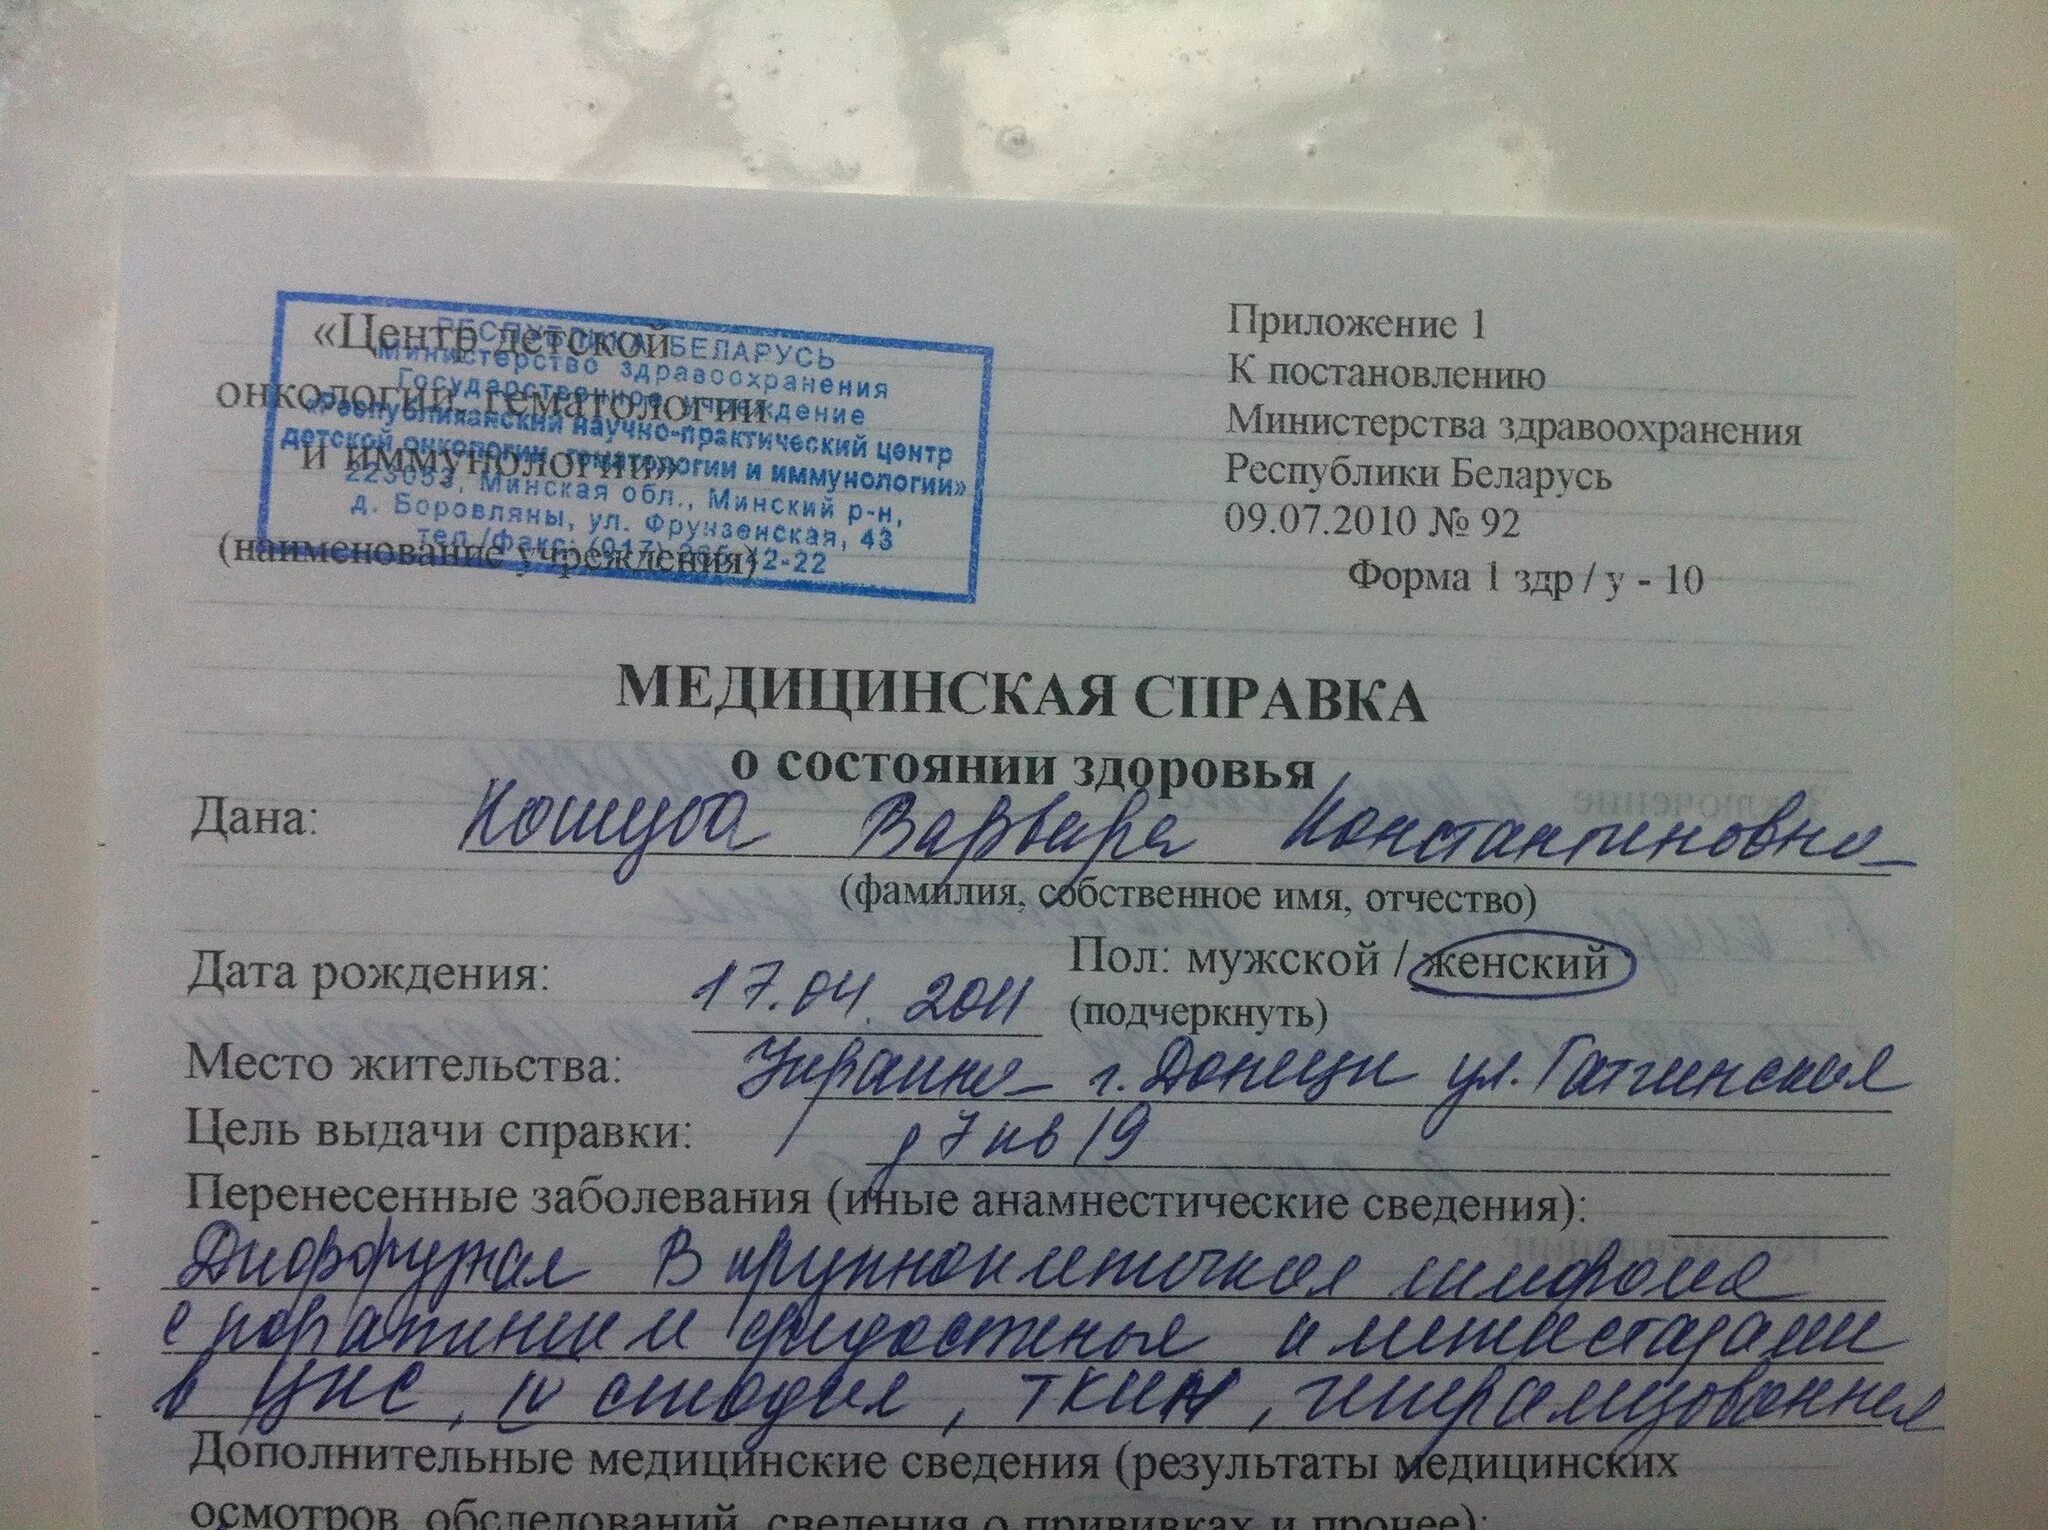 «Центр детской
онкологии, гематологии
и иммунологии»
(наименование учреждения)
РЕСПУБЛИКА БЕЛАРУСЬ
Министерство здравоохранения
Государственное учреждение
«Республиканский научно-практический центр
детской онкологии, гематологии и иммунологии»
223053, Минская обл., Минский р-н,
д. Боровляны, ул. Фрунзенская, 43
тел./факс: (017) 265-42-22
Приложение 1
К постановлению
Министерства здравоохранения
Республики Беларусь
09.07.2010 № 92
Форма 1 здр / у - 10
МЕДИЦИНСКАЯ СПРАВКА
о состоянии здоровья
Дана: Кошуба Варвара Константиновна
(фамилия, собственное имя, отчество)
Дата рождения: 17.04.2011 Пол: мужской / женский
(подчеркнуть)
Место жительства: Украина г. Донецк ул. Гатчинская
Цель выдачи справки: д 7 кв 19
Перенесенные заболевания (иные анамнестические сведения):
Диффузная В крупноклеточная лимфома
с поражением средостенья и метастазами
в ЦНС, IV стадия, генерализованная
Дополнительные медицинские сведения (результаты медицинских
осмотров, обследований, сведения о прививках и прочее):